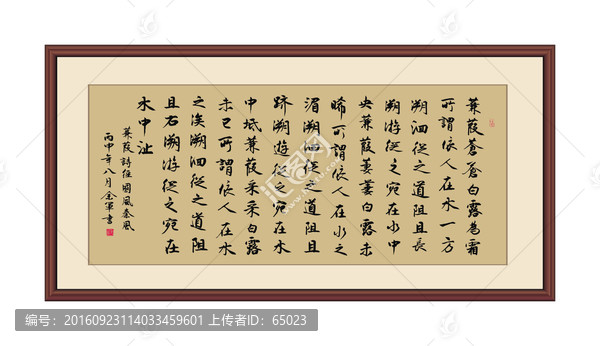 蒹葭蒼蒼白露為霜
所謂依人在水一方
溯洄從之道阻且長
溯游從之宛在水中
央蒹葭萋萋白露未
晞所謂依人在水之
湄溯洄從之道阻且
躋溯游從之宛在水
中坻蒹葭采采白露
未已所謂依人在水
之涘溯洄從之道阻
且右溯游從之宛在
水中沚
蒹葭詩經國風秦風
丙申年八月金軍書
编号：20160923114033459601 上传者ID：65023